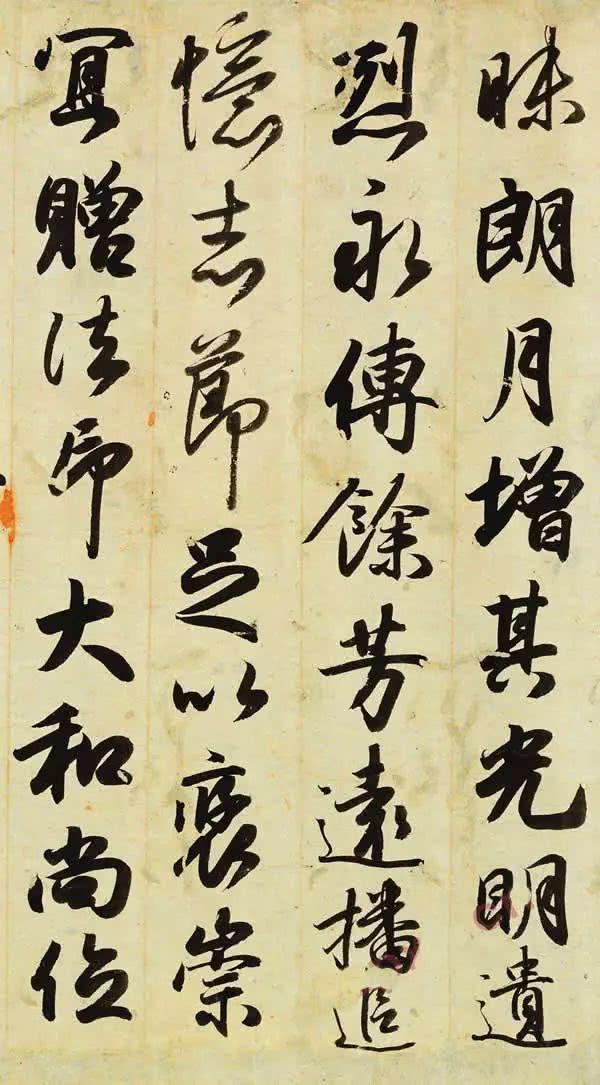 昧朗月增其光明遺
烈永傳餘芳遠播追
憶志節足以褒崇
冝贈法印大和尚位